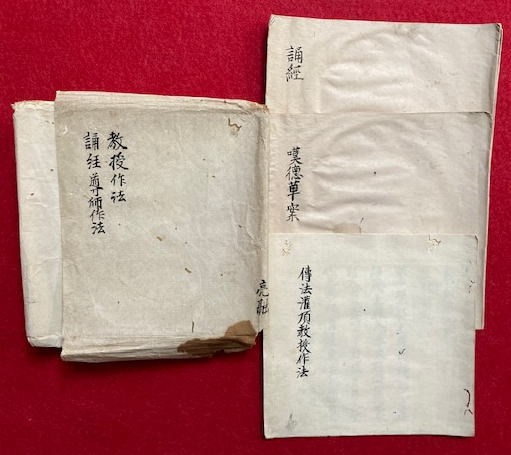 教授作法
誦経導師作法
誦經
嘆德草案
傳法灌頂教授作法